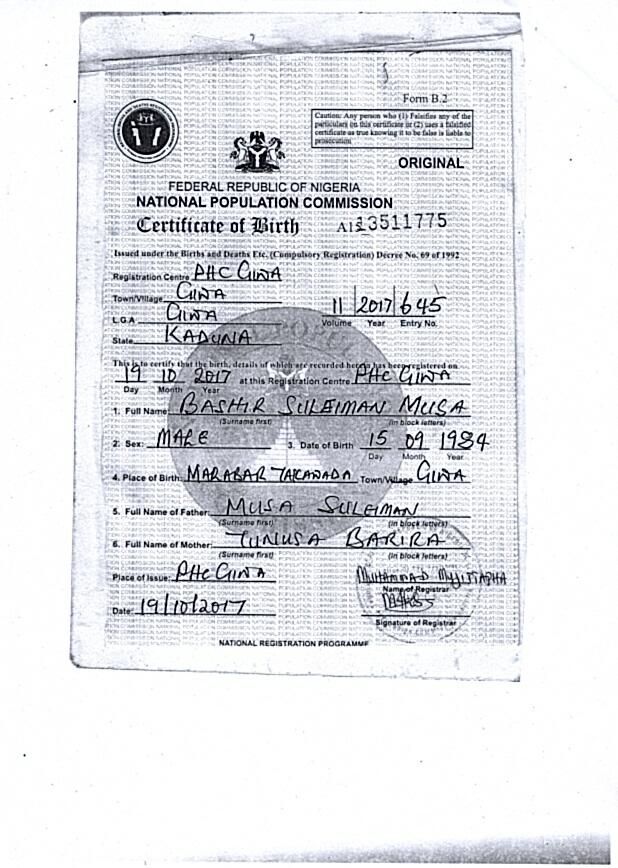 Form B.2
Caution: Any person who (1) Falsifies any of the
particulars on this certificate or (2) uses a falsified
certificate as true knowing it to be false is liable to
prosecution
ORIGINAL
FEDERAL REPUBLIC OF NIGERIA
NATIONAL POPULATION COMMISSION
Certificate of Birth
13511775
Issued under the Births and Deaths Etc. (Compulsory Registration) Decree No. 69 of 1992
Registration Centre PHC GIWA
Town/Village GIWA
L.G.A. GIWA
11 2017 645
Volume Year Entry No.
State KADUNA
This is to certify that the birth, details of which are recorded herein has been registered on
19 10 2017 at this Registration Centre PHC GIWA
Day Month Year
1. Full Name: BASHIR SULEIMAN MUSA
(Surname first) (in block letters)
2. Sex: MALE 3. Date of Birth 15 09 1984
Day Month Year
4. Place of Birth: MARABAR Town/Village GIWA
5. Full Name of Father: MUSA SULEIMAN
(Surname first) (in block letters)
6. Full Name of Mother: BARIRA
(Surname first) (in block letters)
Place of Issue: PHC GIWA
MUHAMMAD
Name of Registrar
Date: 19/10/2017
Signature of Registrar
NATIONAL REGISTRATION PROGRAMME